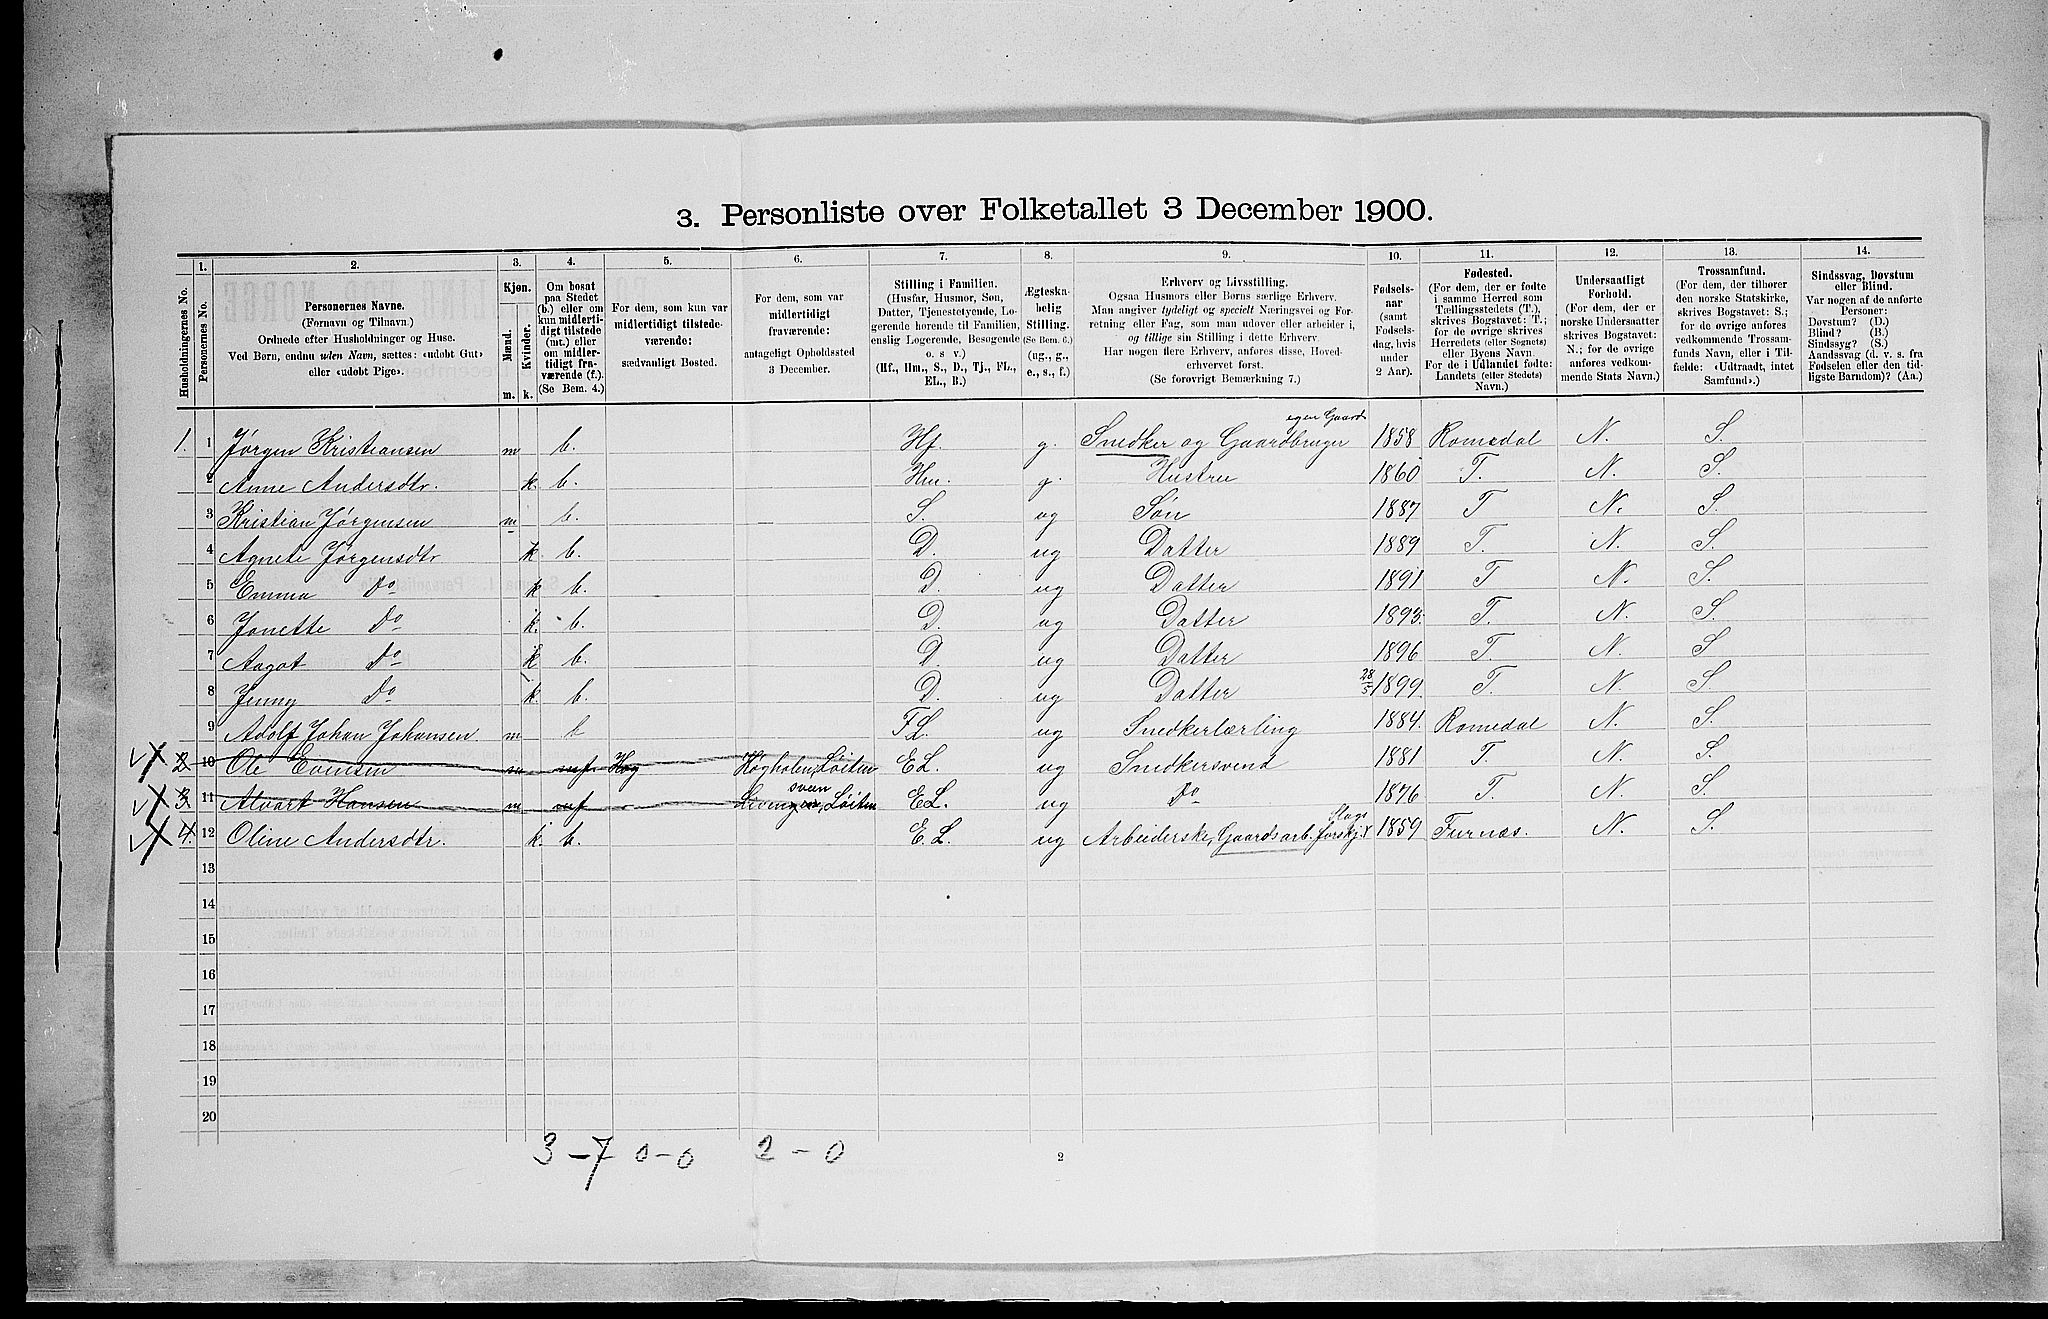 3. Personliste over Folketallet 3 December 1900.
Husholdningernes No.
1.
Personernes No.
2.
Personernes Navne.
(Fornavn og Tilnavn.)
Ordnede efter Husholdninger og Huse.
Ved Børn, endnu uden Navn, sættes: «udøbt Gut»
eller «udøbt Pige».
3.
Kjøn.
Mænd.
Kvinder.
m. k.
4.
Om bosat
paa Stedet
(b.) eller om
kun midlerti-
digt tilstede
(mt.) eller
om midler-
tidigt fra-
værende (f.).
(Se Bem. 4.)
5.
For dem, som kun var
midlertidigt tilstede-
værende:
sædvanligt Bosted.
6.
For dem, som var
midlertidigt
fraværende:
antageligt Opholdssted
3 December.
7.
Stilling i Familien.
(Husfar, Husmor, Søn,
Datter, Tjenestetyende, Lo-
gerende hørende til Familien,
enslig Logerende, Besøgende
o. s v.)
(Hf., Hm., S., D., Tj., FL.,
EL., B.)
8.
Ægteska-
belig
Stilling.
(Se Bem. 6.)
(ug., g.,
e., s., f.)
9.
Erhverv og Livsstilling.
Ogsaa Husmors eller Børns særlige Erhverv.
Man angiver tydeligt og specielt Næringsvei og For-
retning eller Fag, som man udøver eller arbeider i,
og tillige sin Stilling i dette Erhverv.
Har nogen flere Erhverv, anføres disse, Hoved-
erhvervet først.
(Se forøvrigt Bemærkning 7.)
10.
Fødsels-
aar
(samt
Fødsels-
dag, hvis
under
2 Aar).
11.
Fødested.
(For dem, der er fødte
i samme Herred som
Tællingsstedets (T.),
skrives Bogstavet: T.;
for de øvrige skrives
Herredets (eller Sognets)
eller Byens Navn.
For de i Udlandet fødte:
Landets (eller Stedets)
Navn.)
12.
Undersaatligt
Forhold.
(For dem, der er
norske Undersaatter
skrives Bogstavet:
N.; for de øvrige
anføres vedkom-
mende Stats Navn.)
13.
Trossamfund.
(For dem, der tilhører
den norske Statskirke,
skrives Bogstavet: S.;
for de øvrige anføres
vedkommende Trossam-
funds Navn, eller i Til-
fælde: «Udtraadt, intet
Samfund».)
14.
Sindssvag, Døvstum
eller Blind.
Var nogen af de anførte
Personer:
Døvstum? (D.)
Blind? (B.)
Sindssyg? (S.)
Aandssvag (d. v. s. fra
Fødselen eller den tid-
ligste Barndom)? (Aa.)
egen Gaard
1. 1 Jørgen Kristiansen m b. Hf. g. Snedker og Gaardbruger 1858 Romedal N. S.
2 Anne Andersdtr. k. b. Hm. g. Hustru 1860 T. N. S.
3 Kristian Jørgensen m b. S. ug Søn 1887 T N. S.
4 Agnete Jørgensdtr k. b. D. ug Datter 1889 T. N. S.
5 Emma Do k b. D. ug Datter 1891 T N. S.
6 Jonette Do k. b. D. ug Datter 1893. T. N. S.
7 Aagot Do k b. D. ug Datter 1896 T. N. S
8 Jenny Do k. b. D. ug Datter 28/5 1899 T. N. S
9 Adolf Johan Johansen. m b FL. ug Snedkerlærling 1884. Romedal N. S.
2 10 Ole Evensen m mf. Høg Høgholen, Løiten EL. ug Snedkersvend 1881 T. N. S.
sveen
3 11 Alvart Hansen m mf Løiten EL. ug Do 1876 T. N. S.
Slags
4. 12 Oline Andersdtr. k. b. EL. ug Arbeiderske, Gaardsarb. forskj. 1859 Furnæs. N. S.
13
14
15
16
17
18
19
20
3 - 7 0 - 0 2 - 0
2